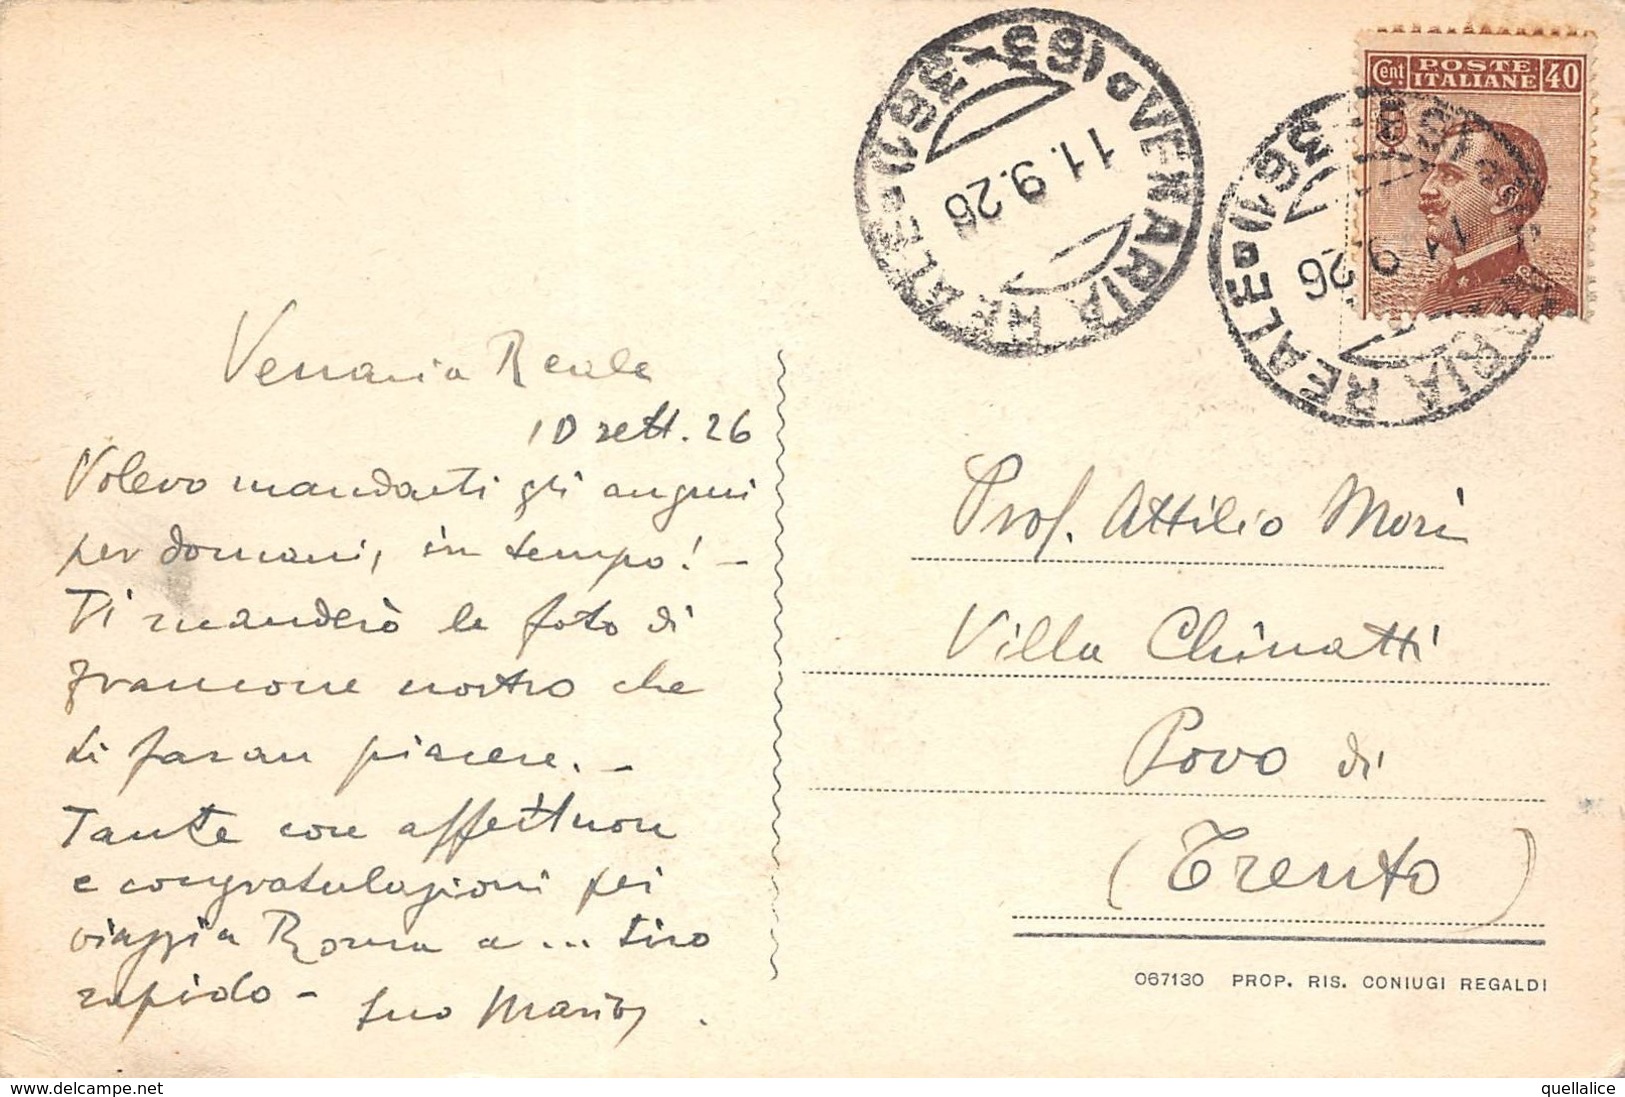 Cent POSTE ITALIANE 40
VENARIA REALE (1861-63)
11.9.26
VENARIA REALE
26
Venaria Reale
10 sett. 26
Volevo mandarti gli auguri
per domani, in tempo! -
Ti manderò le foto di
Francone nostro che
ti faran piacere. -
Tante con
e congratulazioni pei
viaggi a Roma a ... tiro
rapido - Suo
Prof. Attilio Mori
Villa Chinatti
Povo di
(Trento)
067130 PROP. RIS. CONIUGI REGALDI
www.delcampe.net
quellalice